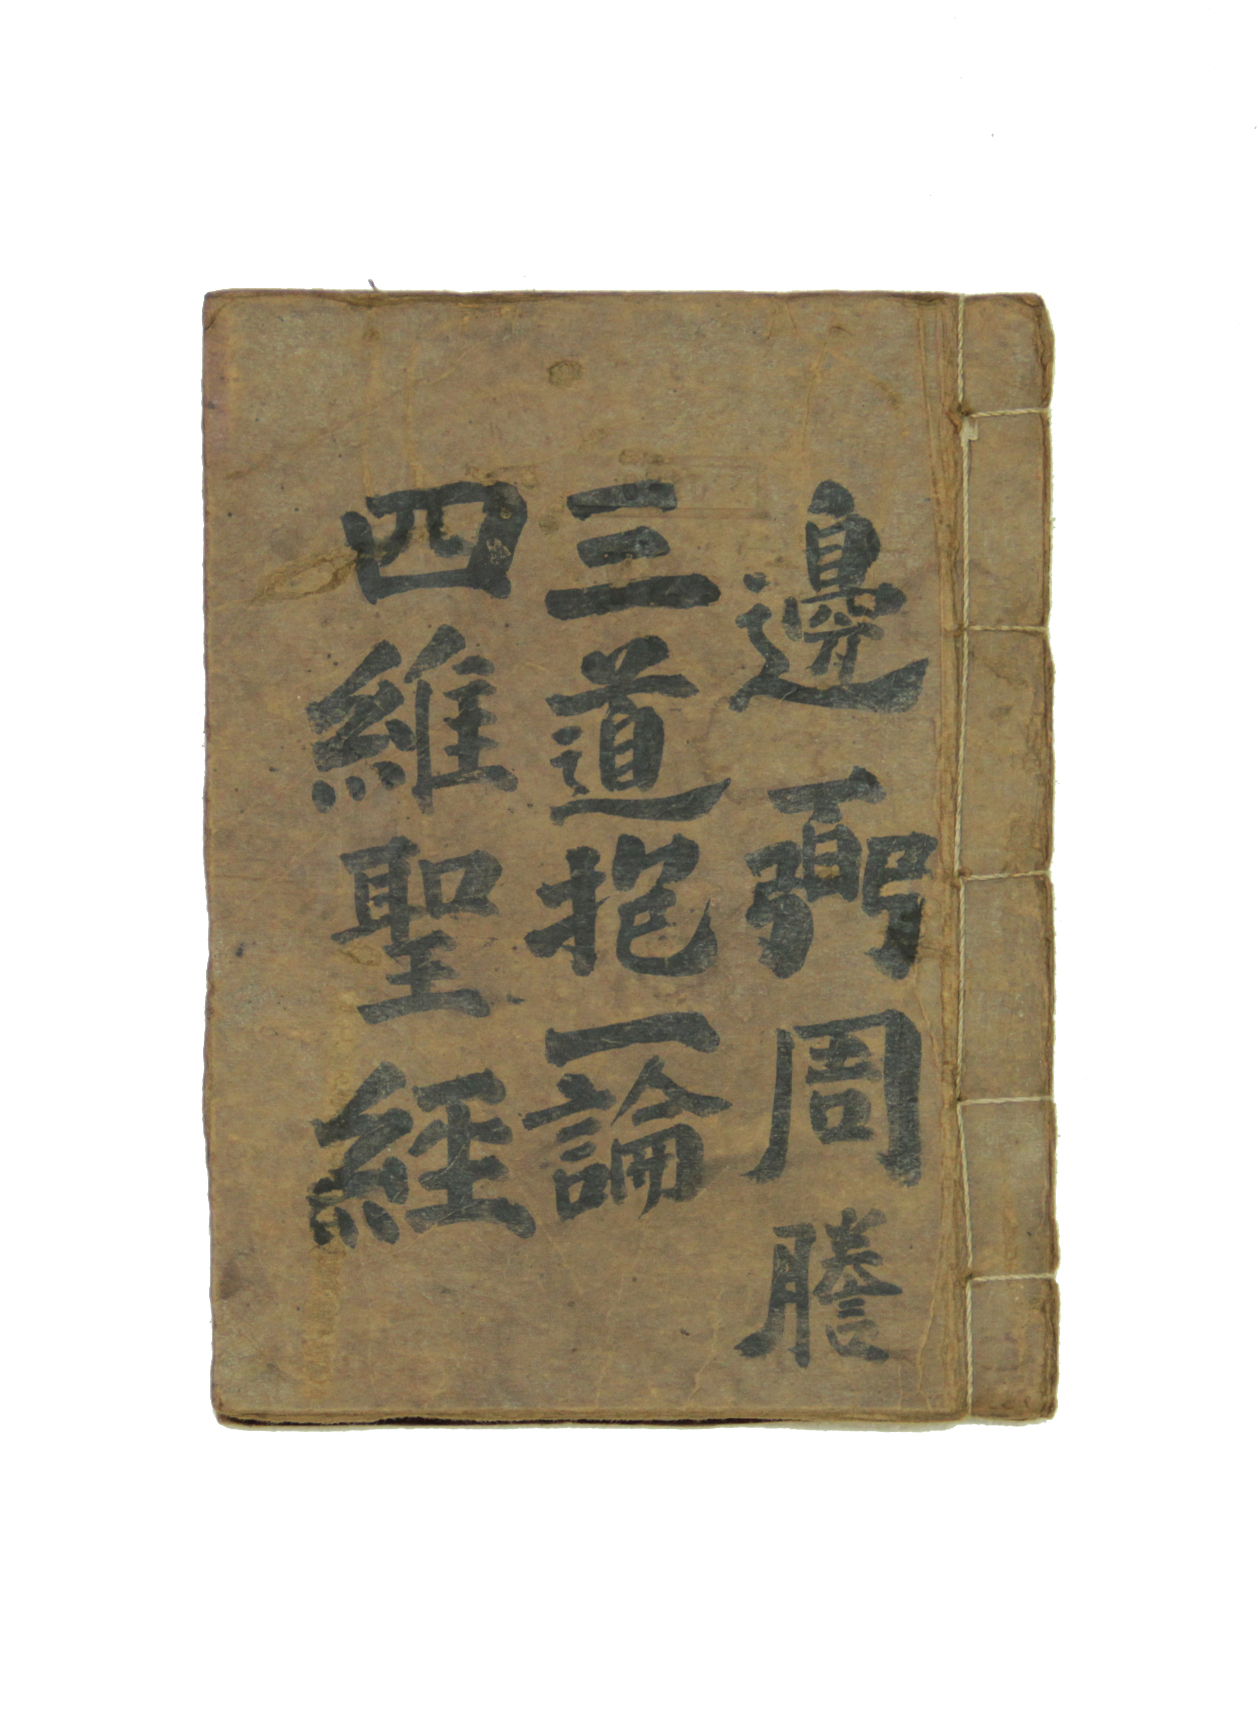 邊弼周謄
三道抱一論
四維聖經